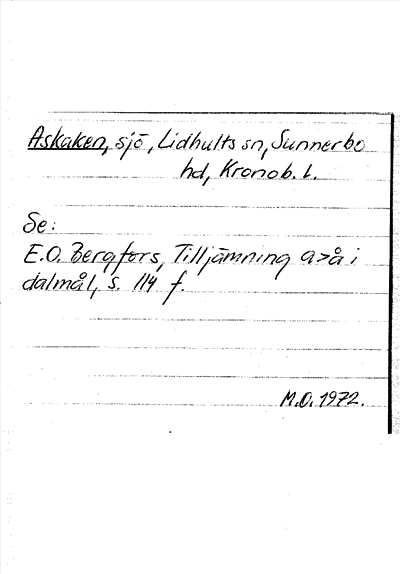 Askaken, sjö, Lidhults sn, Sunnerbo
hd, Kronob. l.
Se:
E.O. Bergfors, Tilljämning a>å i
dalmål, s. 114 f.
M.O. 1972.